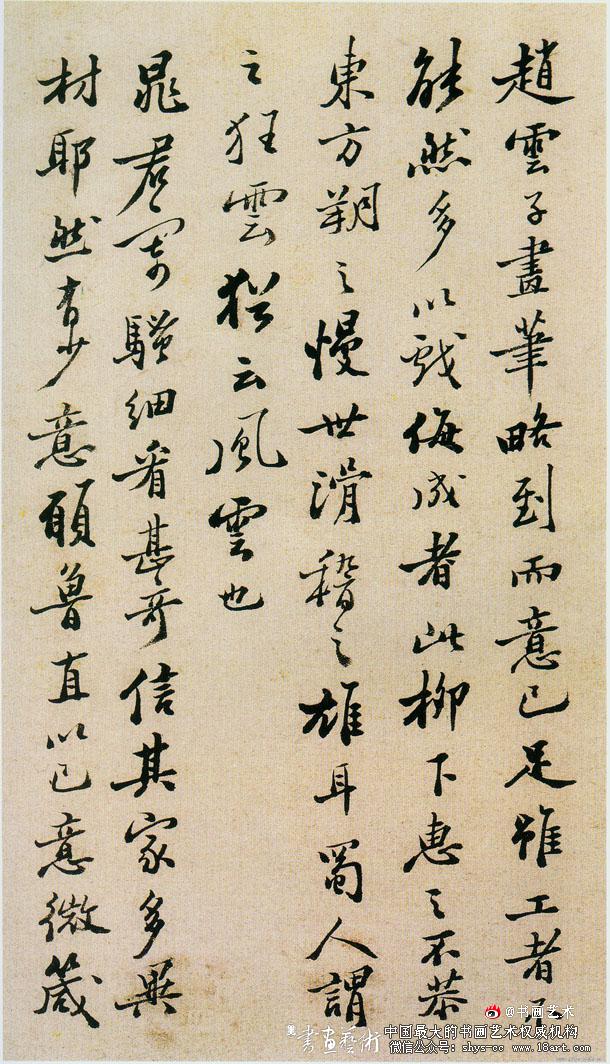 趙雲子畫筆略到而意已足雖工者不
能然多以戲侮成者此柳下惠之不恭
東方朔之慢世滑稽之雄耳蜀人謂
之狂雲猶云風雲也
晁君寄騷細看甚奇信其家多異
材耶然有少意願魯直以己意微箴
@书画艺术
書畫藝術
中国最大的书画艺术权威机构
微信公众号: shys-cc www.18art.com